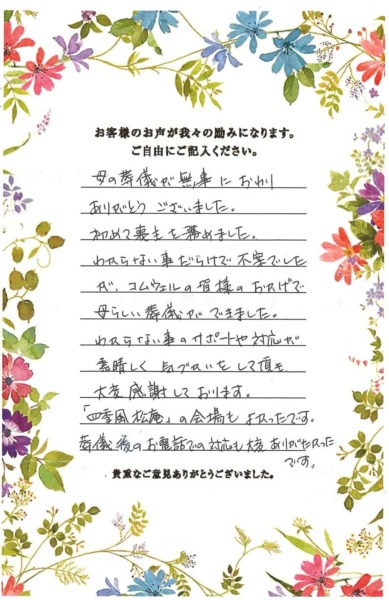 お客様のお声が我々の励みになります。
ご自由にご記入ください。
母の葬儀が無事におわり
ありがとうございました。
初めて喪主を務めました。
わからない事だらけで不安でした
が、コムウェルの皆様のおかげで
母らしい葬儀ができました。
わからない事のサポートや対応が
素晴しく気づかいをして頂き
大変感謝しております。
「四季風松庵」の会場もよかったです。
葬儀後のお電話での対応も大変ありがたかった
です。
貴重なご意見ありがとうございました。